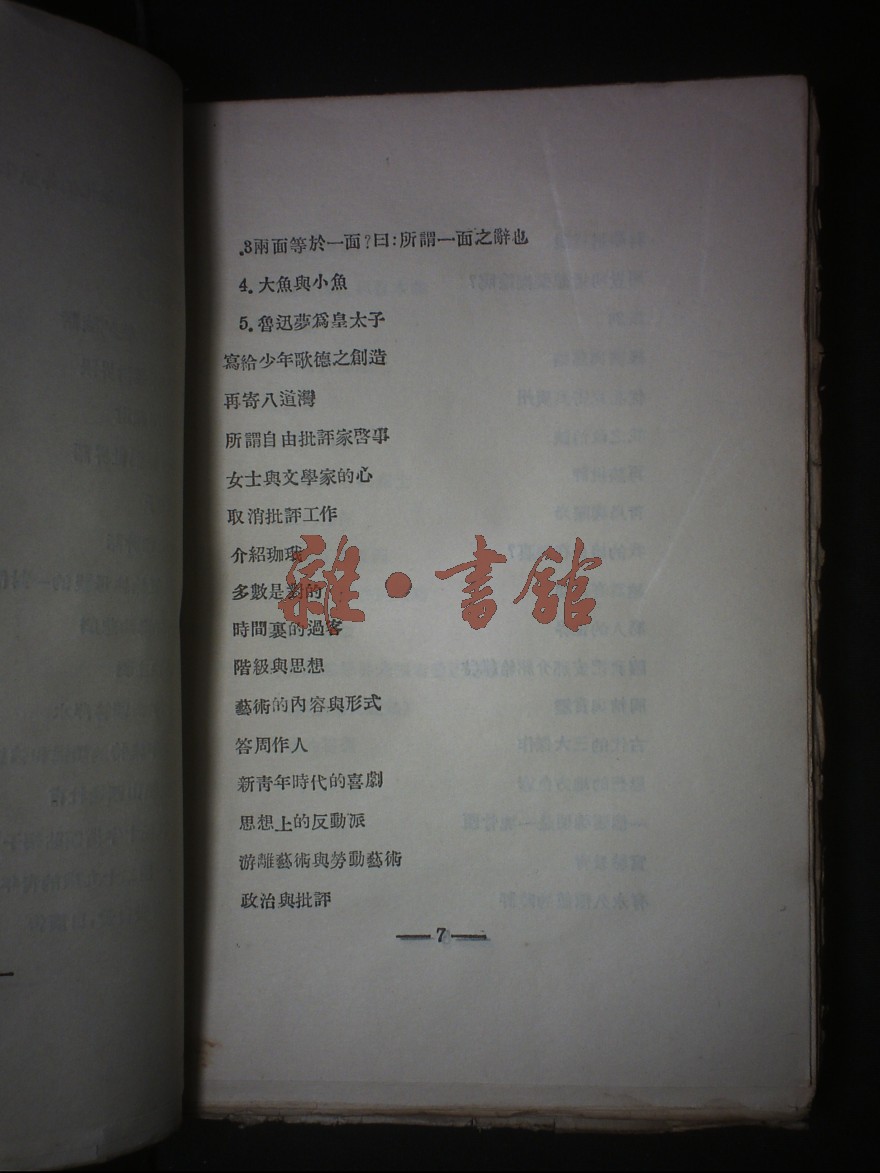 .3兩面等於一面?曰:所謂一面之辭也
4.大魚與小魚
5.魯迅夢爲皇太子
寫給少年歌德之創造
再寄八道灣
所謂自由批評家啓事
女士與文學家的心
取消批評工作
介紹珈玞
多數是對的
時間裏的過客
階級與思想
藝術的內容與形式
答周作人
新靑年時代的喜劇
思想上的反動派
游離藝術與勞動藝術
政治與批評
7
雜·書館